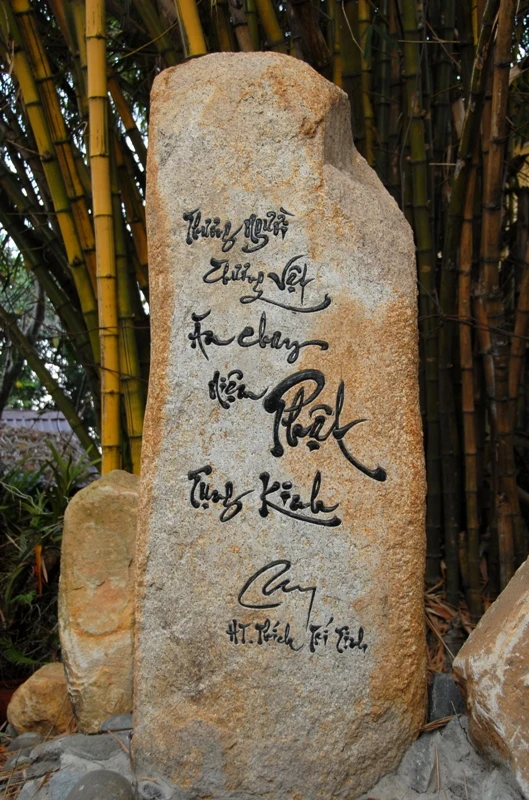 Thương Người
Thương Vật
Ăn chay
Niệm Phật
Tụng Kinh
HT. Thích Trí Tịnh